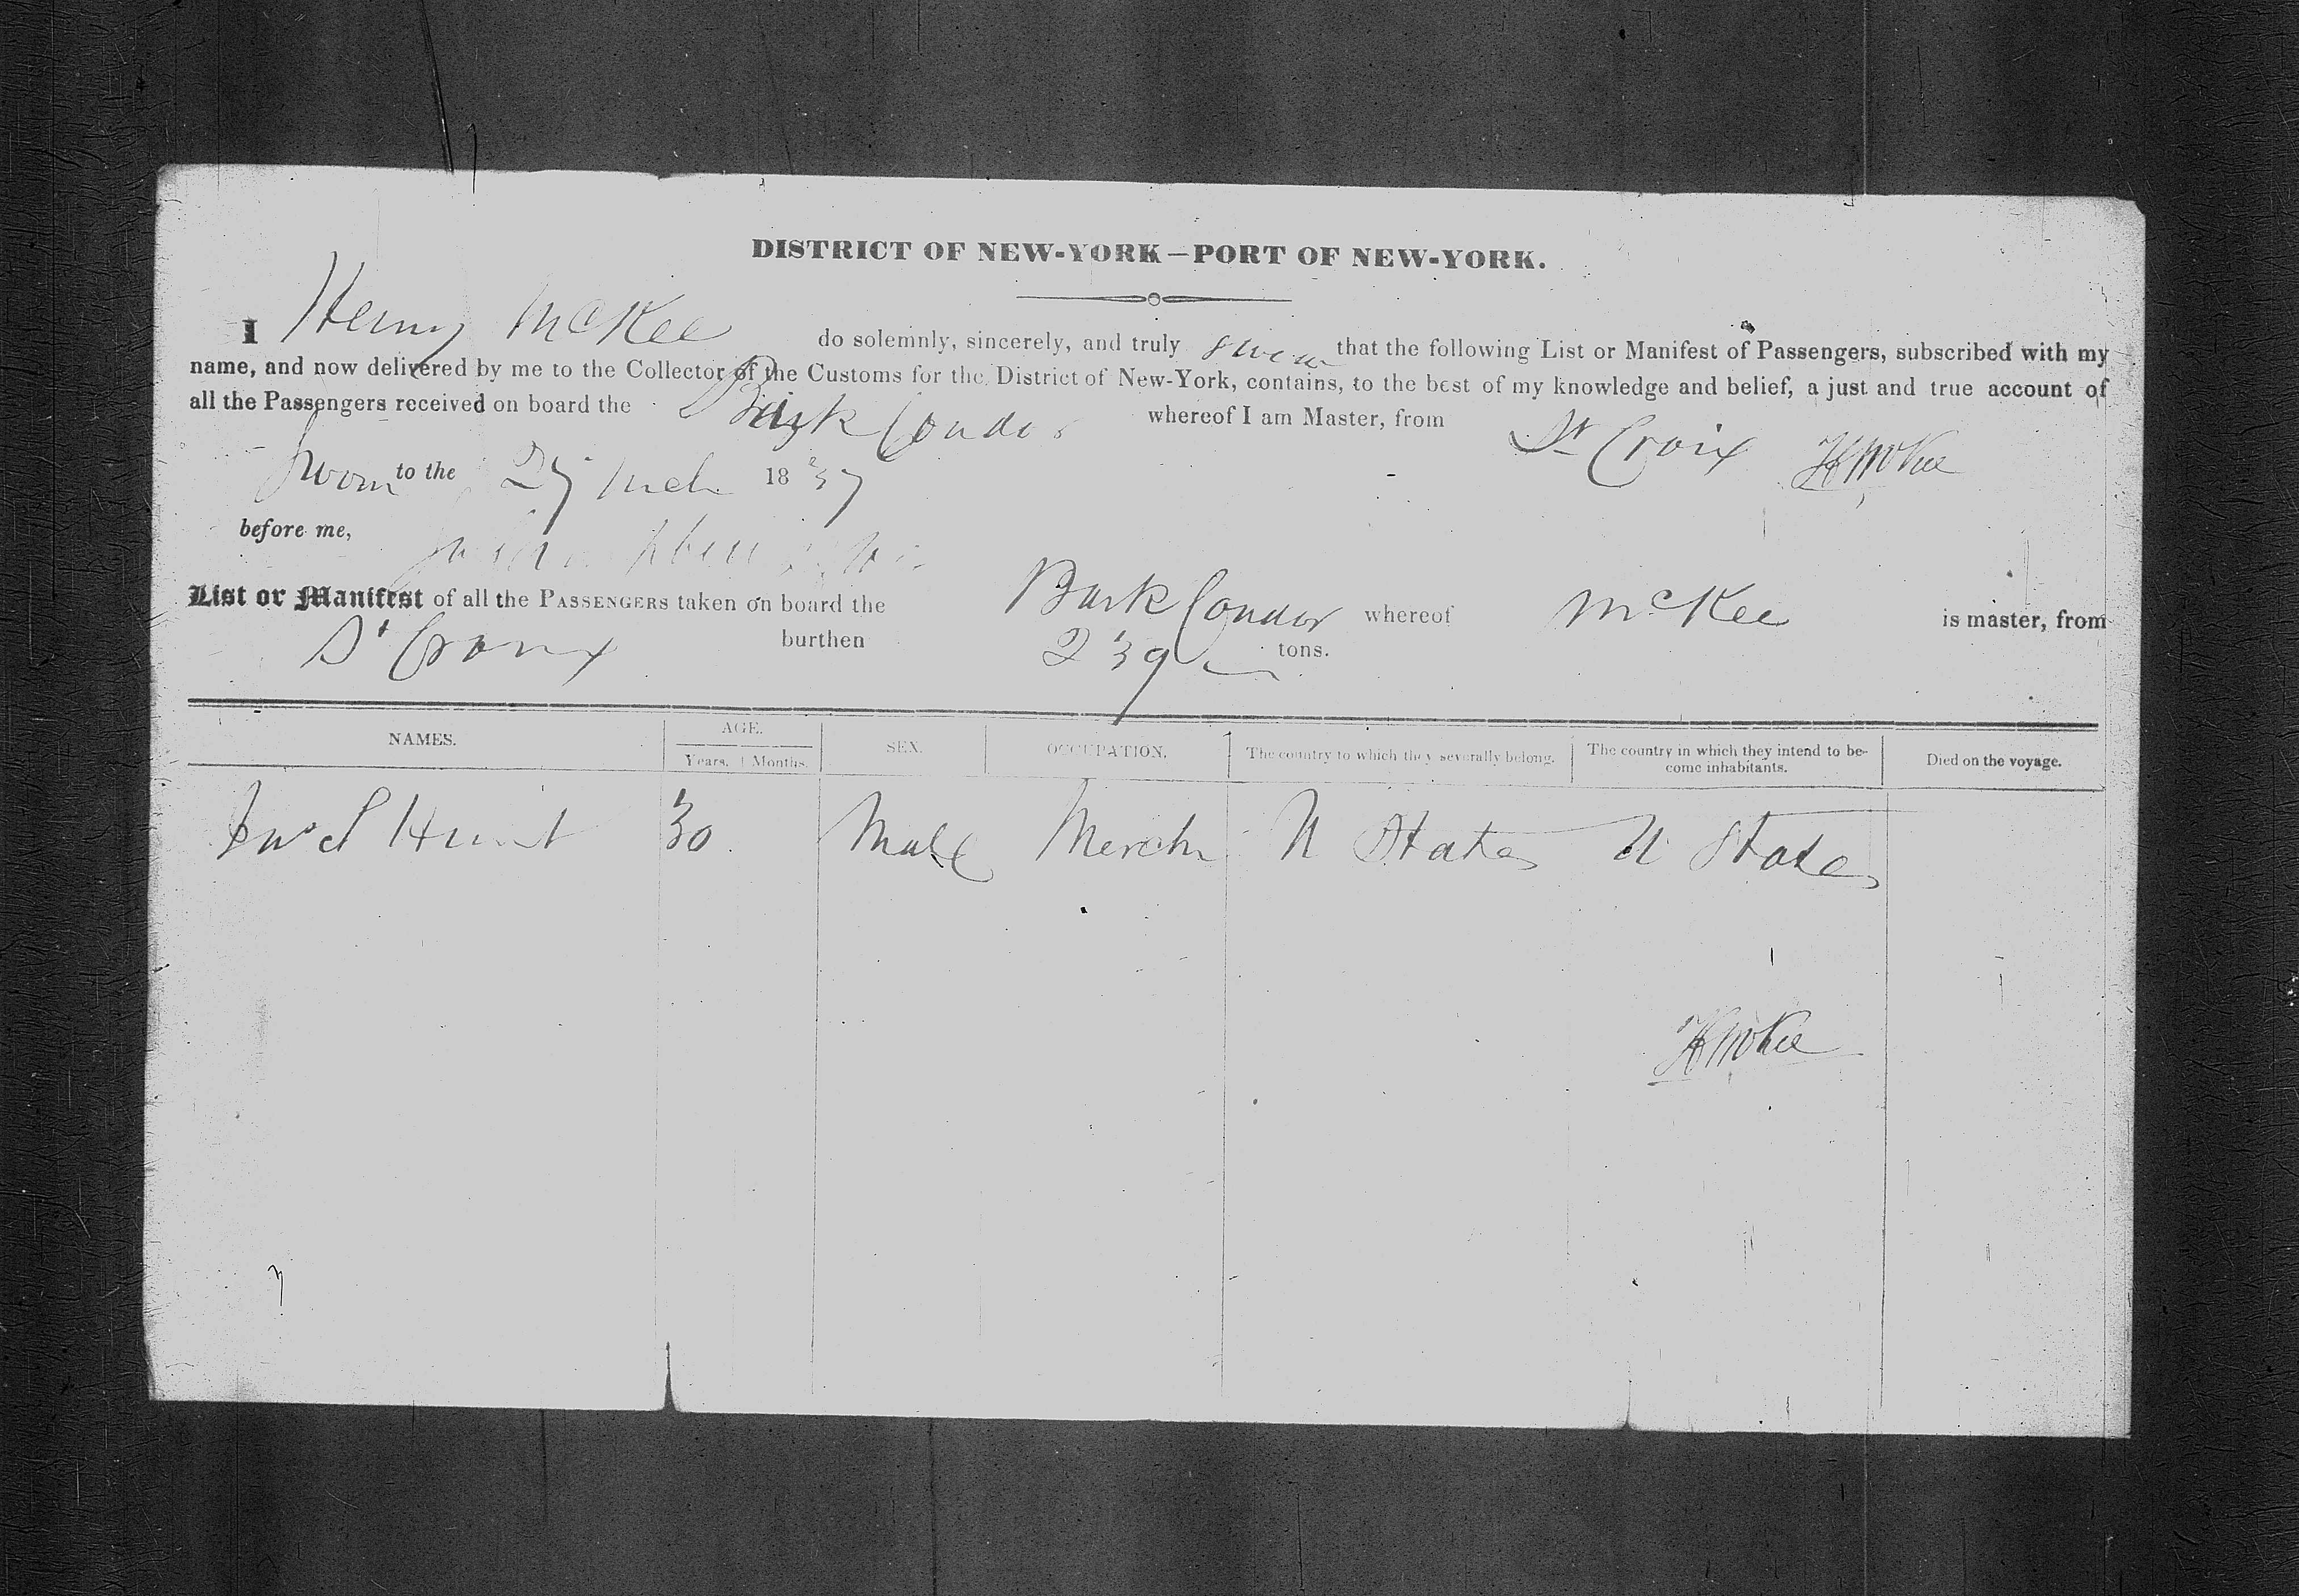 DISTRICT OF NEW-YORK—PORT OF NEW-YORK.
I Henry McKee do solemnly, sincerely, and truly swear that the following List or Manifest of Passengers, subscribed with my
name, and now delivered by me to the Collector of the Customs for the District of New-York, contains, to the best of my knowledge and belief, a just and true account of
all the Passengers received on board the Bark Condor whereof I am Master, from St Croix
Sworn to the 27 Mch 1837 HMcKee
before me,
List or Manifest of all the PASSENGERS taken on board the Bark Condor whereof McKee is master, from
St Croix burthen 239 tons.
NAMES. AGE. SEX. OCCUPATION. The country to which they severally belong. The country in which they intend to be- Died on the voyage.
Years. Months. come inhabitants.
Hunt 30 Male Merch U States U States
HMcKee